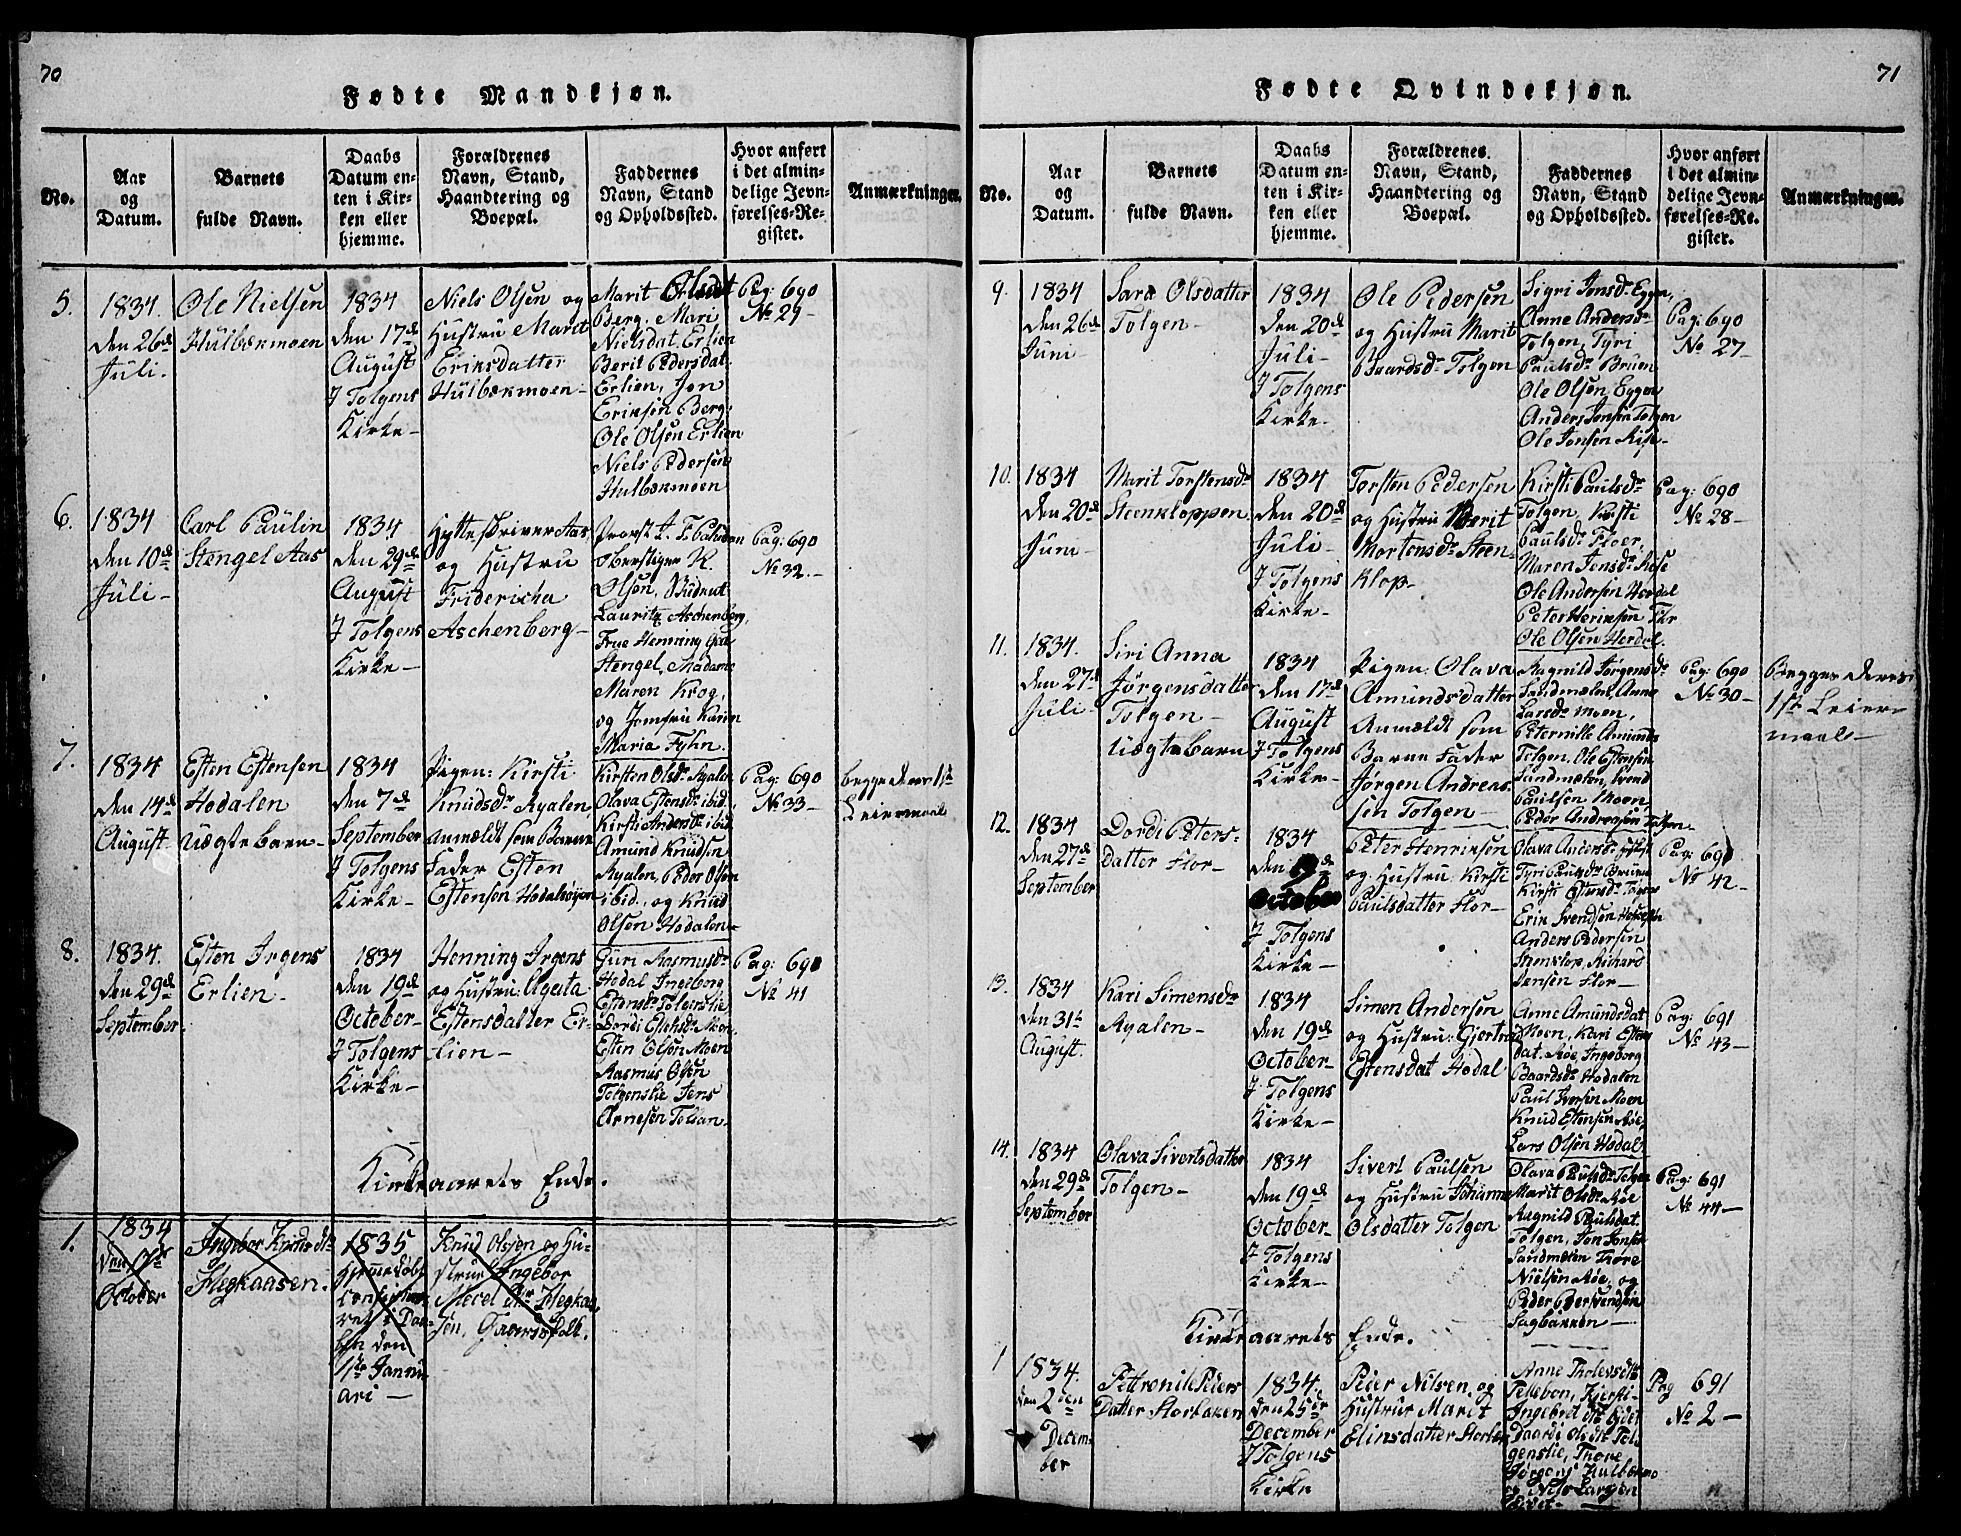 70
Fødte Mandkjøn.
No.
Aar
og
Datum.
Barnets
fulde Navn.
Daabs
Datum en-
ten i Kir-
ken eller
hjemme.
Forældrenes
Navn, Stand,
Haandtering og
Boepæl.
Faddernes
Navn, Stand
og Opholdssted.
Hvor anført
i det almin-
delige Jevn-
førelses-Re-
gister.
Anmærkninger.
5.
1834.
den 26de
Juli.
Ole Nielsen
Hulbækmoen
1834
den 17de
August
J Tolgens
Kirke
Niels Olsen og
Hustru Marit
Eriksdatter
Hulbækmoen
Marit Olsdt
Berg. Mari
Nielsdat. Erlien
Berit Pedersdat.
Erlien, Jon
Eriksen Berg.
Ole Olsen Erlien
Niels Pedersen
Hulbækmoen
Pag: 690
No 29
6.
1834
den 10de
Juli
Carl Paulin
Stengel Aas
1834
den 29de
August
J Tolgens
Kirke
Hytteskriver Aas
og Hustru
Fridericha
Aschenberg
Provst
Oberstiger R.
Olsen, Student
Lauritz Aschenberg,
Frue Henning
Stengel, Madame
Maren Krog,
og Jomfru Karen
Maria Fyhn.
Pag: 690
No 32.
7.
1834
den 14de
August
Esten Estensen
Hodalen
Uægte barn
1834
den 7de
September
J Tolgens
Kirke
Pigen: Kirsti
Knudsdr Ryalen,
anmældt som Barne
Fader Esten
Estensen Hodalsøyen
Kirsten Olsdr Ryalen
Olava Estensdr ibid.
Kirsti Andersdr ibid.
Amund Knudsen
Ryalen, Peder Olsen
ibid., og Knud
Olsen Hodalen
Pag: 690
No 33
begge deres 1ste
Leiermaal
8.
1834.
den 29de
September
Esten Irgens
Erlien
1834
den 19de
October
J Tolgens
Kirke
Henning Irgens
og Hustru: Agata
Estensdatter Er-
lien
Guri Rasmusdr
Hodal Ingeborg
Estensdr Tolgenslie
Dordi Estensdr Moen
Esten Olsen Moen
Rasmus Olsen
Tolgenslie Jens
Arnesen Tollan
Pag: 691
No 41
Kirkeaarets Ende.
1.
1834
October
Ingebor Knudsdtr
Hegkaasen.
1835
Hjemmedøbt
ret i Daa-
ben den
1ste Janu-
ari
Knud Olsen og Hu-
strue Ingebor
Hegkaa-
sen,
71
Fødte Qvindekjøn.
No.
Aar
og
Datum.
Barnets
fulde Navn.
Daabs
Datum en-
ten i Kir-
ken eller
hjemme.
Forældrenes.
Navn, Stand,
Haandtering og
Boepæl.
Faddernes
Navn, Stand
og Opholdssted.
Hvor anført
i det almin-
delige Jevn-
førelses-Re-
gister.
Anmærkninger.
9.
1834
den 26de
Juni
Sara Olsdatter
Tolgen
1834
den 20de
Juli
J Tolgens
Kirke
Ole Pedersen
og Hustru Marit
Baardsdr Tolgen
Sigri Jonsdr Eggen,
Anne Andersdr
Tolgen, Tyri
Paulsdr Bruen
Ole Olsen Eggen
Anders Jonsen Tolgen
Ole Jonsen Rise
Pag: 690
No 27
10.
1834
den 20de
Juni
Marit Torstensdr
Steenkloppen
1834
den 20de
Juli
J Tolgens
Kirke
Torsten Pedersen
og Hustru Berit
Mortensdr Steen-
klop
Kirsti Paulsdr
Tolgen, Kirsti
Paulsdr Floer,
Maren Jonsdr Rise
Ole Andersen Hodal
Peter Henriksen Flor
Ole Olsen Hodal.
Pag: 690
No 28
11.
1834.
den 27de
Juli
Siri Anna
Jørgensdatter
Tolgen
Uægte barn
1834
den 17de
August
J Tolgens
Kirke
Pigen: Olava
Amundsdatter
Anmældt som
Barne Fader
Jørgen Andreas-
sen Tolgen
Ragnild Jørgensdr
Sandmælen, Anne
Larsdr Moen,
Peternille Amunds
Tolgen, Ole Estensen
Sandmæten, Svend
Paulsen Moen,
Peder Andreasen Tolgen
Pag: 690
No 30
Begge deres
1ste Leier-
maal
12.
1834
den 27de
September
Dordi Peters-
datter Flor
1834
October
J Tolgens
Kirke
Peter Henriksen
og Hustru: Kirsti
Paulsdatter Flor
Olava Andersdr
Tyri Paulsdr Bruen
Kirsti Olsensdr Tolgen
Erik Svendsen
Anders Pedersen
Steenklop, Richard
Jensen Flor
Pag: 691
No 42
13.
1834
den 31te
August.
Kari Simensdr
Ryalen
1834
den 19de
October
J Tolgens
Kirke
Simen Andersen
og Hustru: Gjertrud
Estensdat Hodal
Anne Amundsdat
Moen, Kari Estens
dat. Røe, Ingeborg
Baardsdr Hodalen
Paul Iversen Moen
Knud Estensen Røe,
Lars Olsen Hodal.
Pag: 691
No 43
14.
1834
den 29de
September
Olava Sivertsdatter
Tolgen
1834
den 19de
October
J Tolgens
Kirke
Sivert Paulsen
og Hustru Johanne
Olsdatter Tolgen
Olava Paulsdr Tolgen
Marit Olsdr Røe
Ragnild Paulsdat.
Tolgen, Jon Jonsen
Sandmæten Thore
Nielsen Røe, og
Peder Pedersen
Sagbakken
Pag: 691
No 44
Kirkeaarets Ende.
1
1834.
den 2den
Decem-
ber
Pettronile Peders
Datter Storbækken
1834.
den 25de
December
J Tolgens
Kirke
Peder Nilsen og
Hustrue Marit
Elinsdatter
Anne Tholevsdtr
Tellebon, Kjersti
Ingebrigtsdtr
Olsdtr Tol-
genslie, Thore
Jørgens Hulbækmo
og Nils Larsen
Pag 691
No 2